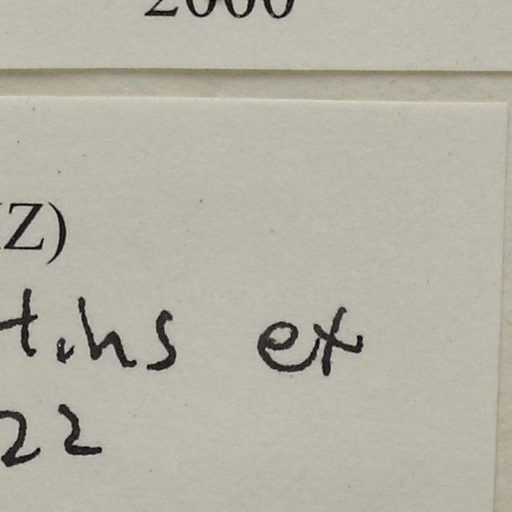 2000
Z)
t.hs ex
22